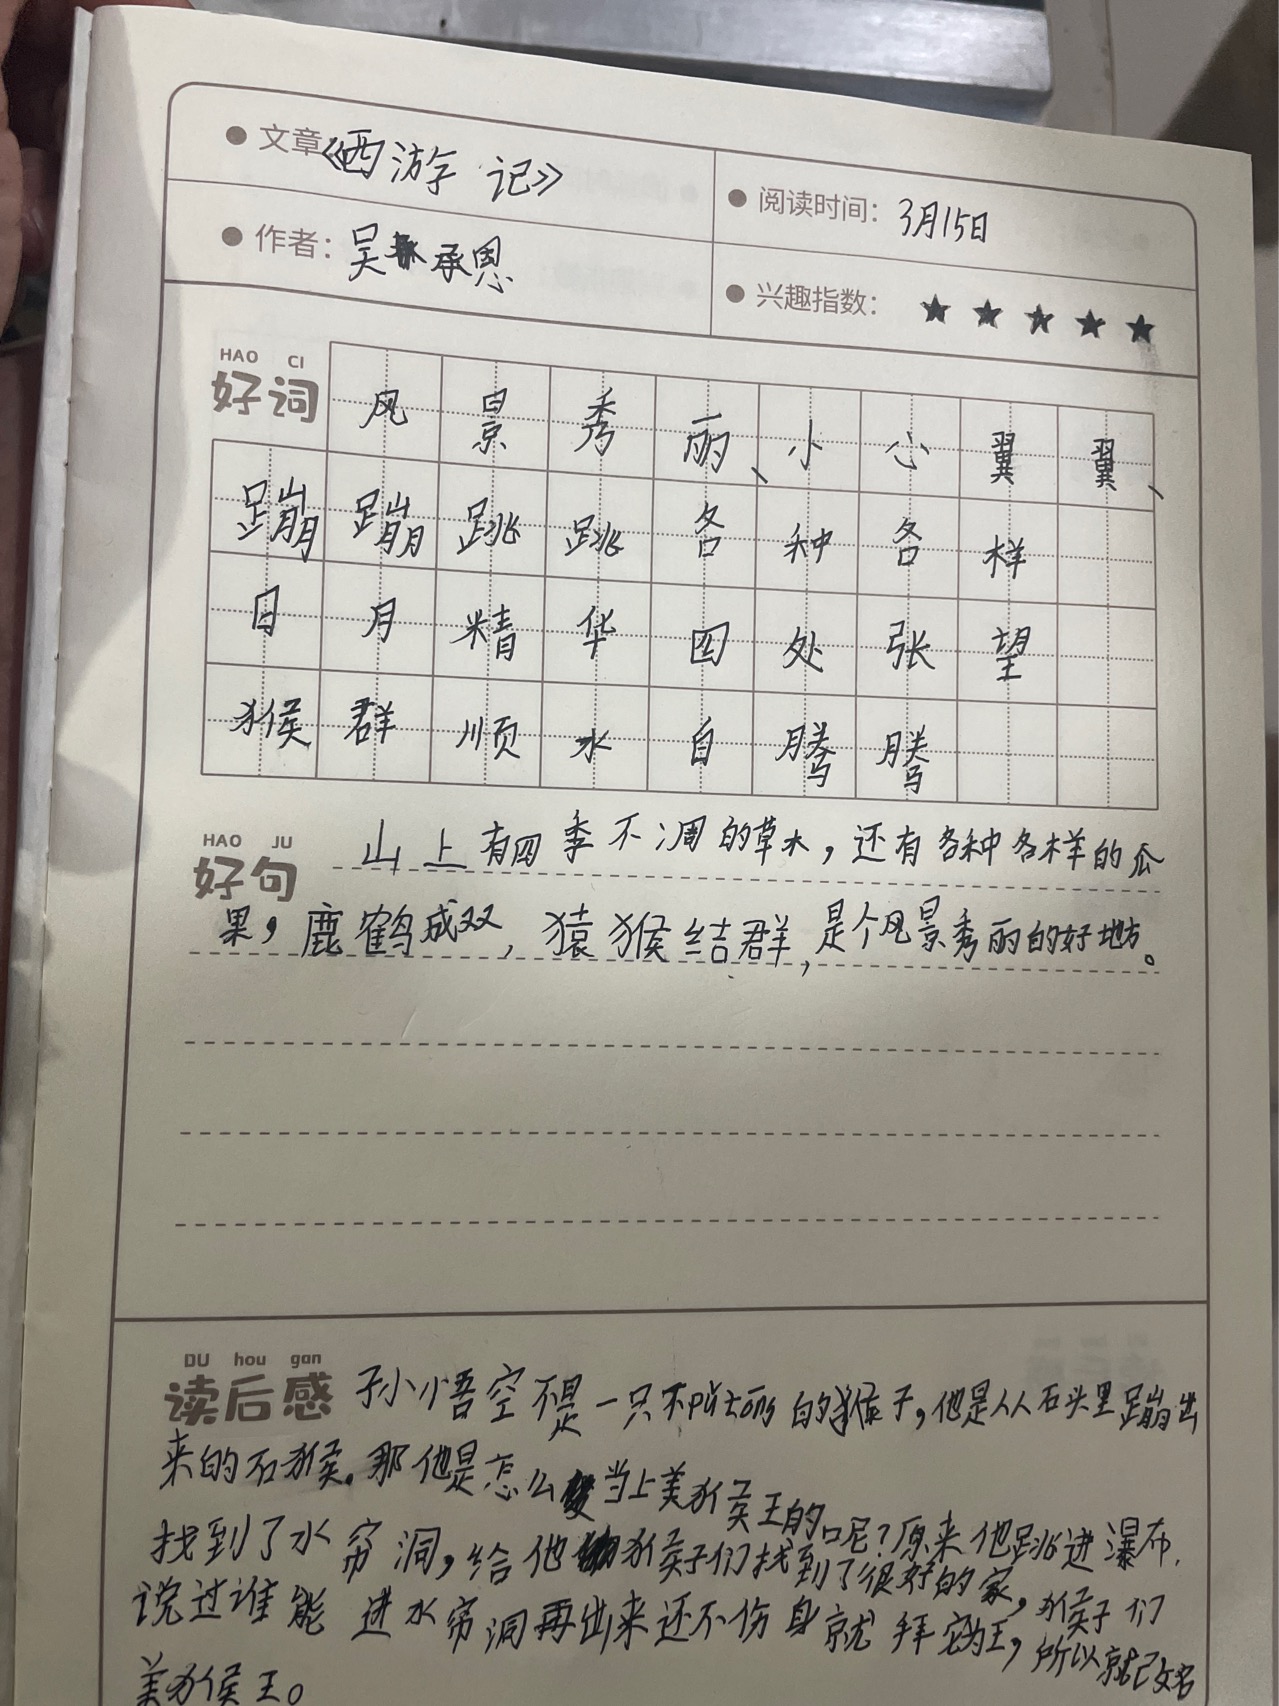 文章《西游记》
阅读时间：3月15日
作者：吴承恩
兴趣指数：★★★★★
HAO CI
好词
风景秀丽、小心翼翼、
蹦蹦跳跳各种各样
日月精华四处张望
猴群顺水自腾腾
HAO JU
好句
山上有四季不凋的草木，还有各种各样的瓜
果，鹿鹤成双，猿猴结群，是个风景秀丽的好地方。
DU hou gan
读后感
孙小悟空不是一只不pǔtōng的猴子，他是从石头里蹦出
来的石猴。那他是怎么当上美猴王的呢？原来他跳进瀑布，
找到了水帘洞，给他猴子们找到了很好的家，猴子们
说过谁能进水帘洞再出来还不伤身就拜它为王，所以就改名
美猴王。